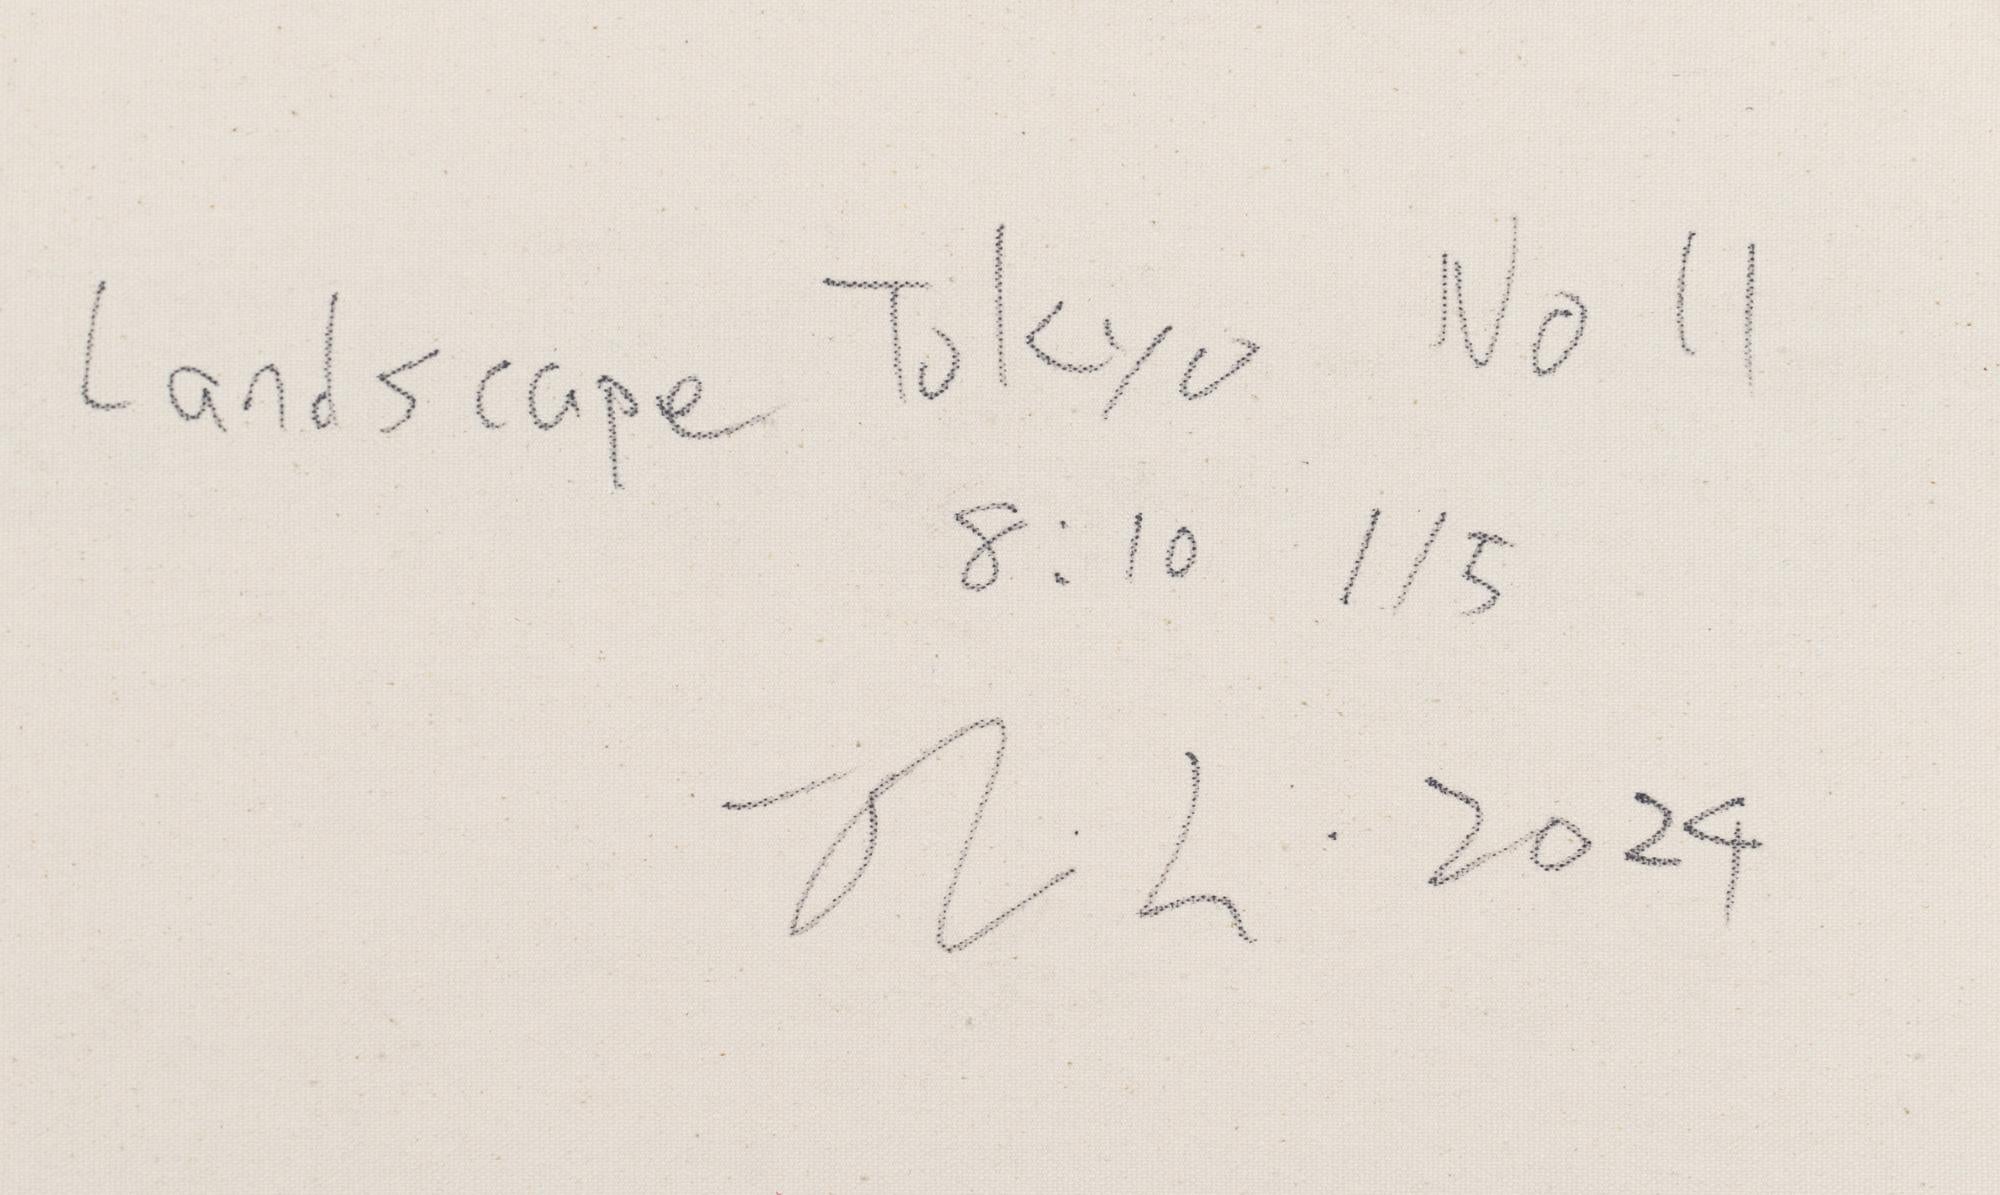 Landscape Tokyo No 11
8:10 1/5
2024